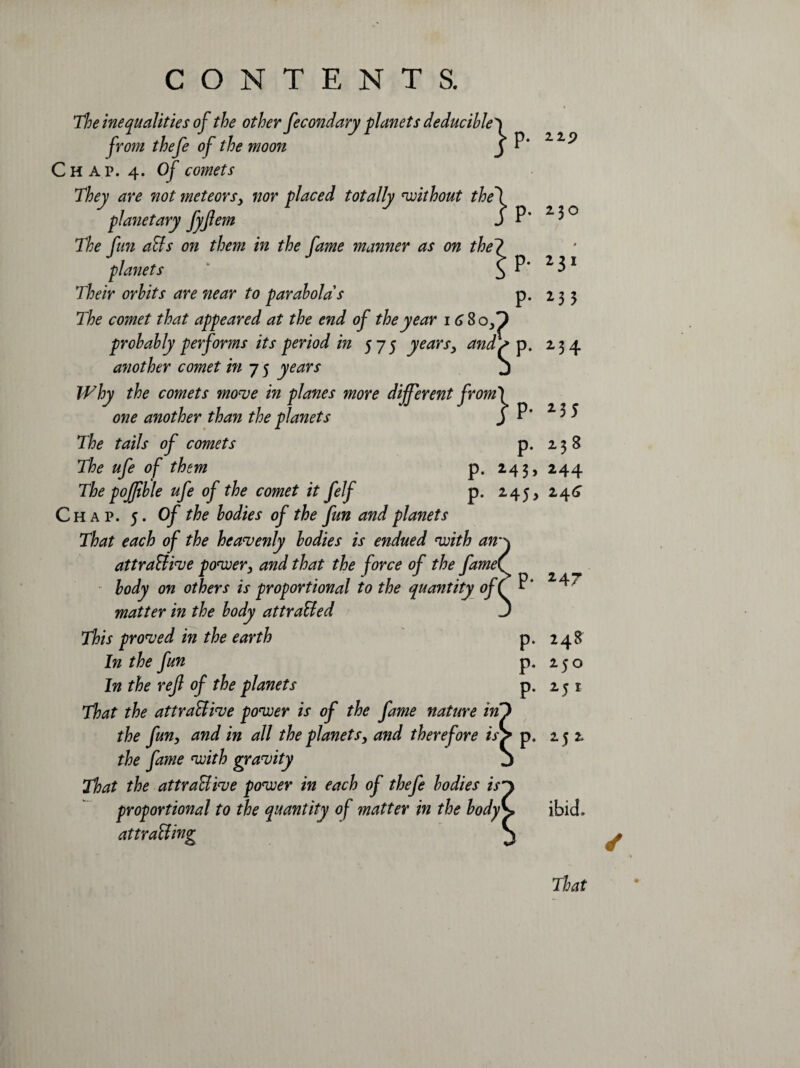 CONTENTS.
The inequalities of the other ſecondary planets deducible } p. 229
from theſe of the moon
CHAP. 4. Of comets
They are not meteors, nor placed totally without the } p. 230
planetary ſyſtem
The ſun acts on them in the ſame manner as on the } p. 231
planets
Their orbits are near to parabola's p. 233
The comet that appeared at the end of the year 1680,
probably performs its period in 575 years, and } p. 234
another comet in 75 years
Why the comets move in planes more different from } p. 235
one another than the planets
The tails of comets p. 238
The uſe of them p. 243, 244
The poſſible uſe of the comet it ſelf p. 245, 246
CHAP. 5. Of the bodies of the ſun and planets
That each of the heavenly bodies is endued with an
attractive power, and that the force of the ſame } p. 247
body on others is proportional to the quantity of
matter in the body attracted
This proved in the earth p. 248
In the ſun p. 250
In the reſt of the planets p. 251
That the attractive power is of the ſame nature in
the ſun, and in all the planets, and therefore is } p. 252
the ſame with gravity
That the attractive power in each of theſe bodies is
proportional to the quantity of matter in the body } ibid.
attracting
That